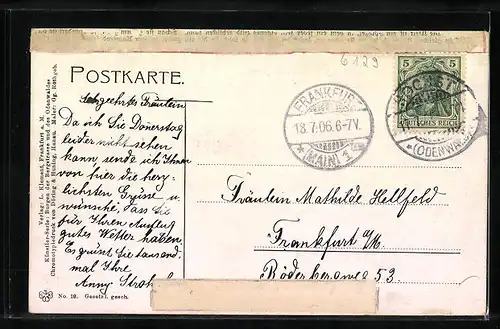 6129
POSTKARTE.
Sehr geehrtes Fräulein
Da ich Sie Donerstag
leider nicht sehen
kann, sende ich Ihnen
von hier die herz-
lichsten Grüsse u
wünsche, dass Sie
für Ihren Ausflug
gutes Wetter haben.
Es grüsst Sie tausend-
mal Ihre
Anny
FRANKFURT
18.7.06.6-7V.
*(MAIN) 1*
5 5
DEUTSCHES REICH
HÖCHST
*(ODENWALD)
Fräulein Mathilde Hellfeld
Frankfurt a/M.
53.
Verlag: L. Klement, Frankfurt a. M.
Künstler-Serie: Burgen der Bergstrasse und des Odenwaldes
Chromotypiedruck von Döring & Huning, Hanau. Maler: Gg. Rothgeb.
No. 10. Gesetzl. gesch.